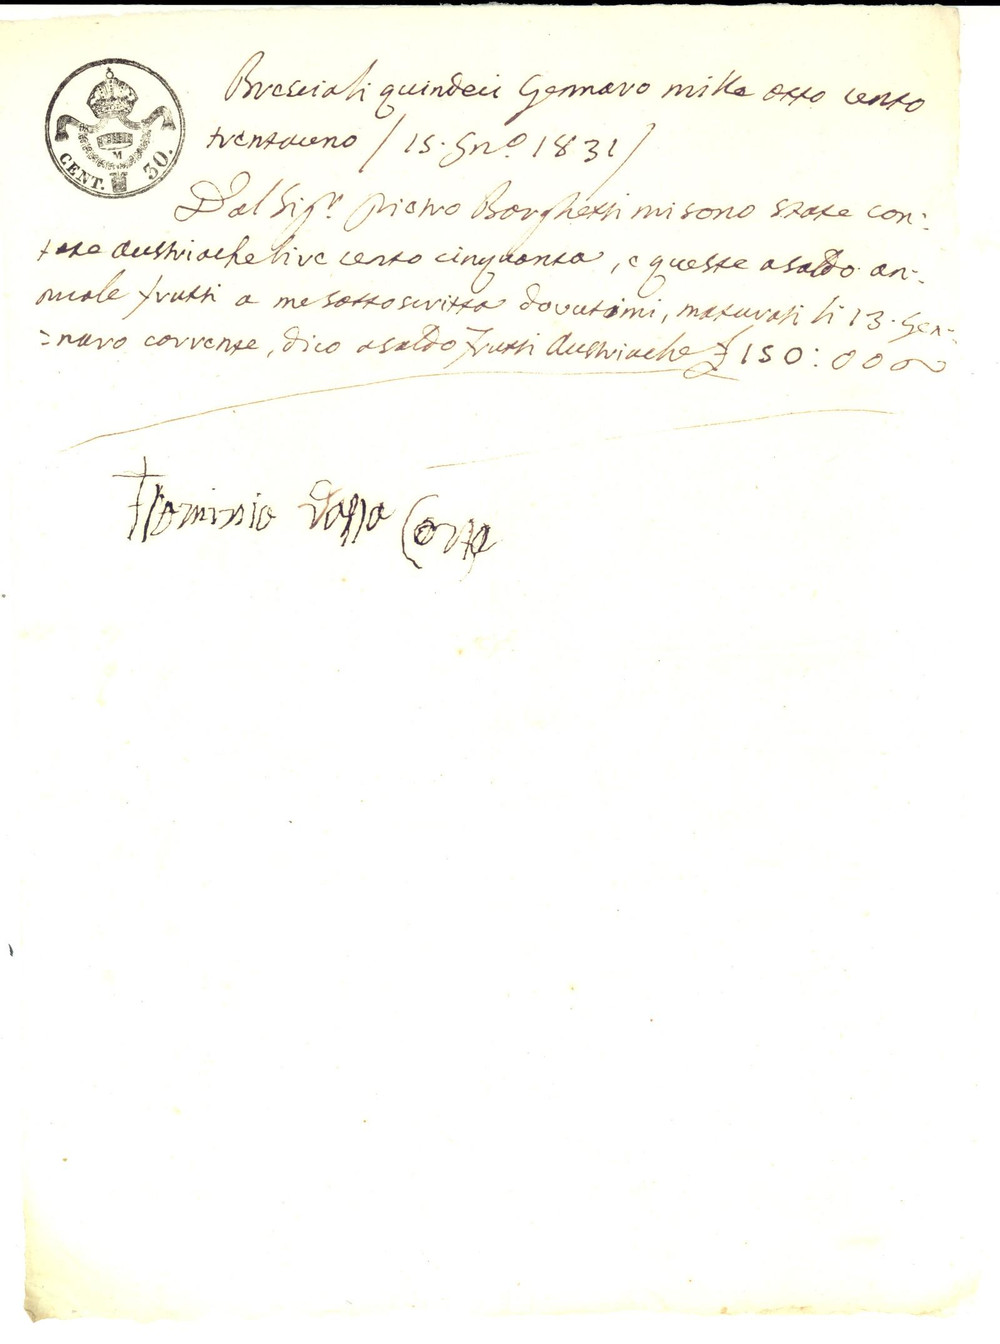 CENT. 30.
M
Brescia li quindeci Gennaro mille otto cento
trentauno / 15. Gnº. 1831 /
Dal Sigr. Pietro Borghetti mi sono state con:
tate Austriache lire cento cinquanta, e queste a saldo an:
nuale frutti a me sottoscritta dovutimi, maturati li 13. Gen=
=naro corrente, dico a saldo frutti Austriache £ 150:000
Flaminia Dalla Corte